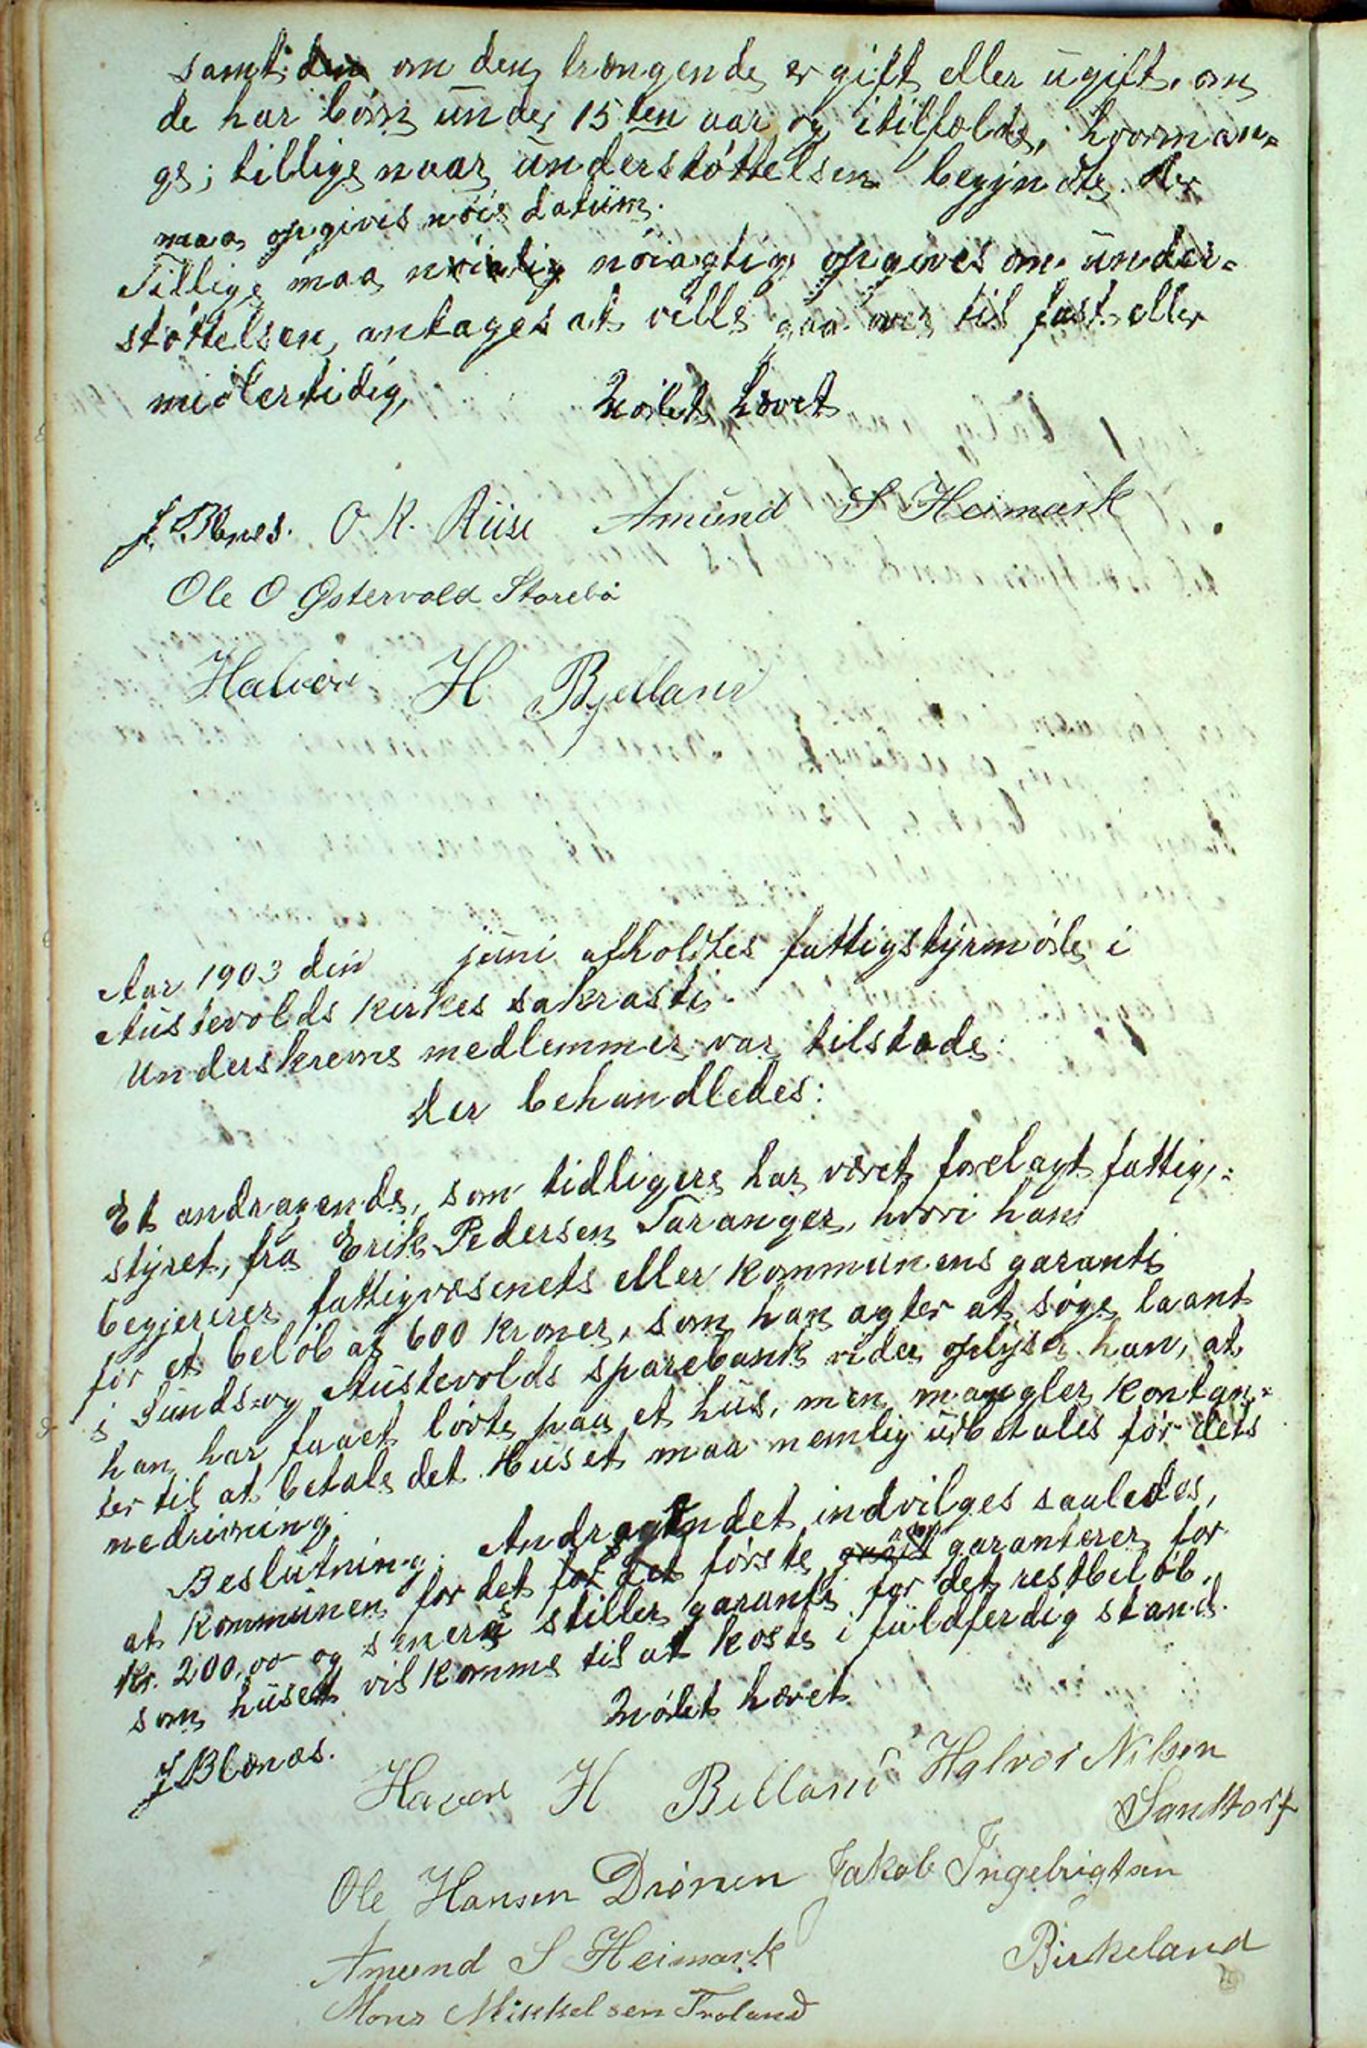 samt den om den trængende er gift eller ugift, om
de har börn under 15 ten aar og i tilfælde, hvorman-
ge; tillige naar understöttelsen begynte. der
maa opgives nöie datum.
Tillige maa nöiagtig opgives om under-
stöttelsen antages at ville gaa over til fast eller
midlertidig,
Mödet hævet
J. Blænes. O. K. Riise Amund S Heimark
Ole O Østervold Storebö
Halvor H Bjelland
Aar 1903 den juni afholdtes fattigstyrmöde i
Austevolds kirkes sakrasti.
Underskrevne medlemmer var tilstæde:
der behandledes:
Et andragende, som tidligere har været forelagt fattig-
styret, fra Erik Pedersen Taranger, hvori han
begjerer fattigvæsenets eller kommunens garanti
for et belöb af 600 kroner, som han agter at söge laant
i Sunds og Austevolds sparebank vider oplyser han, at
han har faaet lövte paa et hus, men mangler kontan-
ter til at betale det. Huset maa nemlig udbetales för dets
nedrivning.
Beslutning. Andragendet indvilges saaledes,
at kommunen for det for det förste garanterer for
Kr. 200,00 og senere stiller garanti for det restbelöb,
som huset vil komme til at koste i fuldferdig stand.
Mödet hævet
J Blænæs.
Havor H Billand Halvor Nilsen
Sandtorf
Ole Hansen Drönen Jakob Ingebrigtsen
Birkeland
Amund S Heimark
Mons Mikkelsen Troland